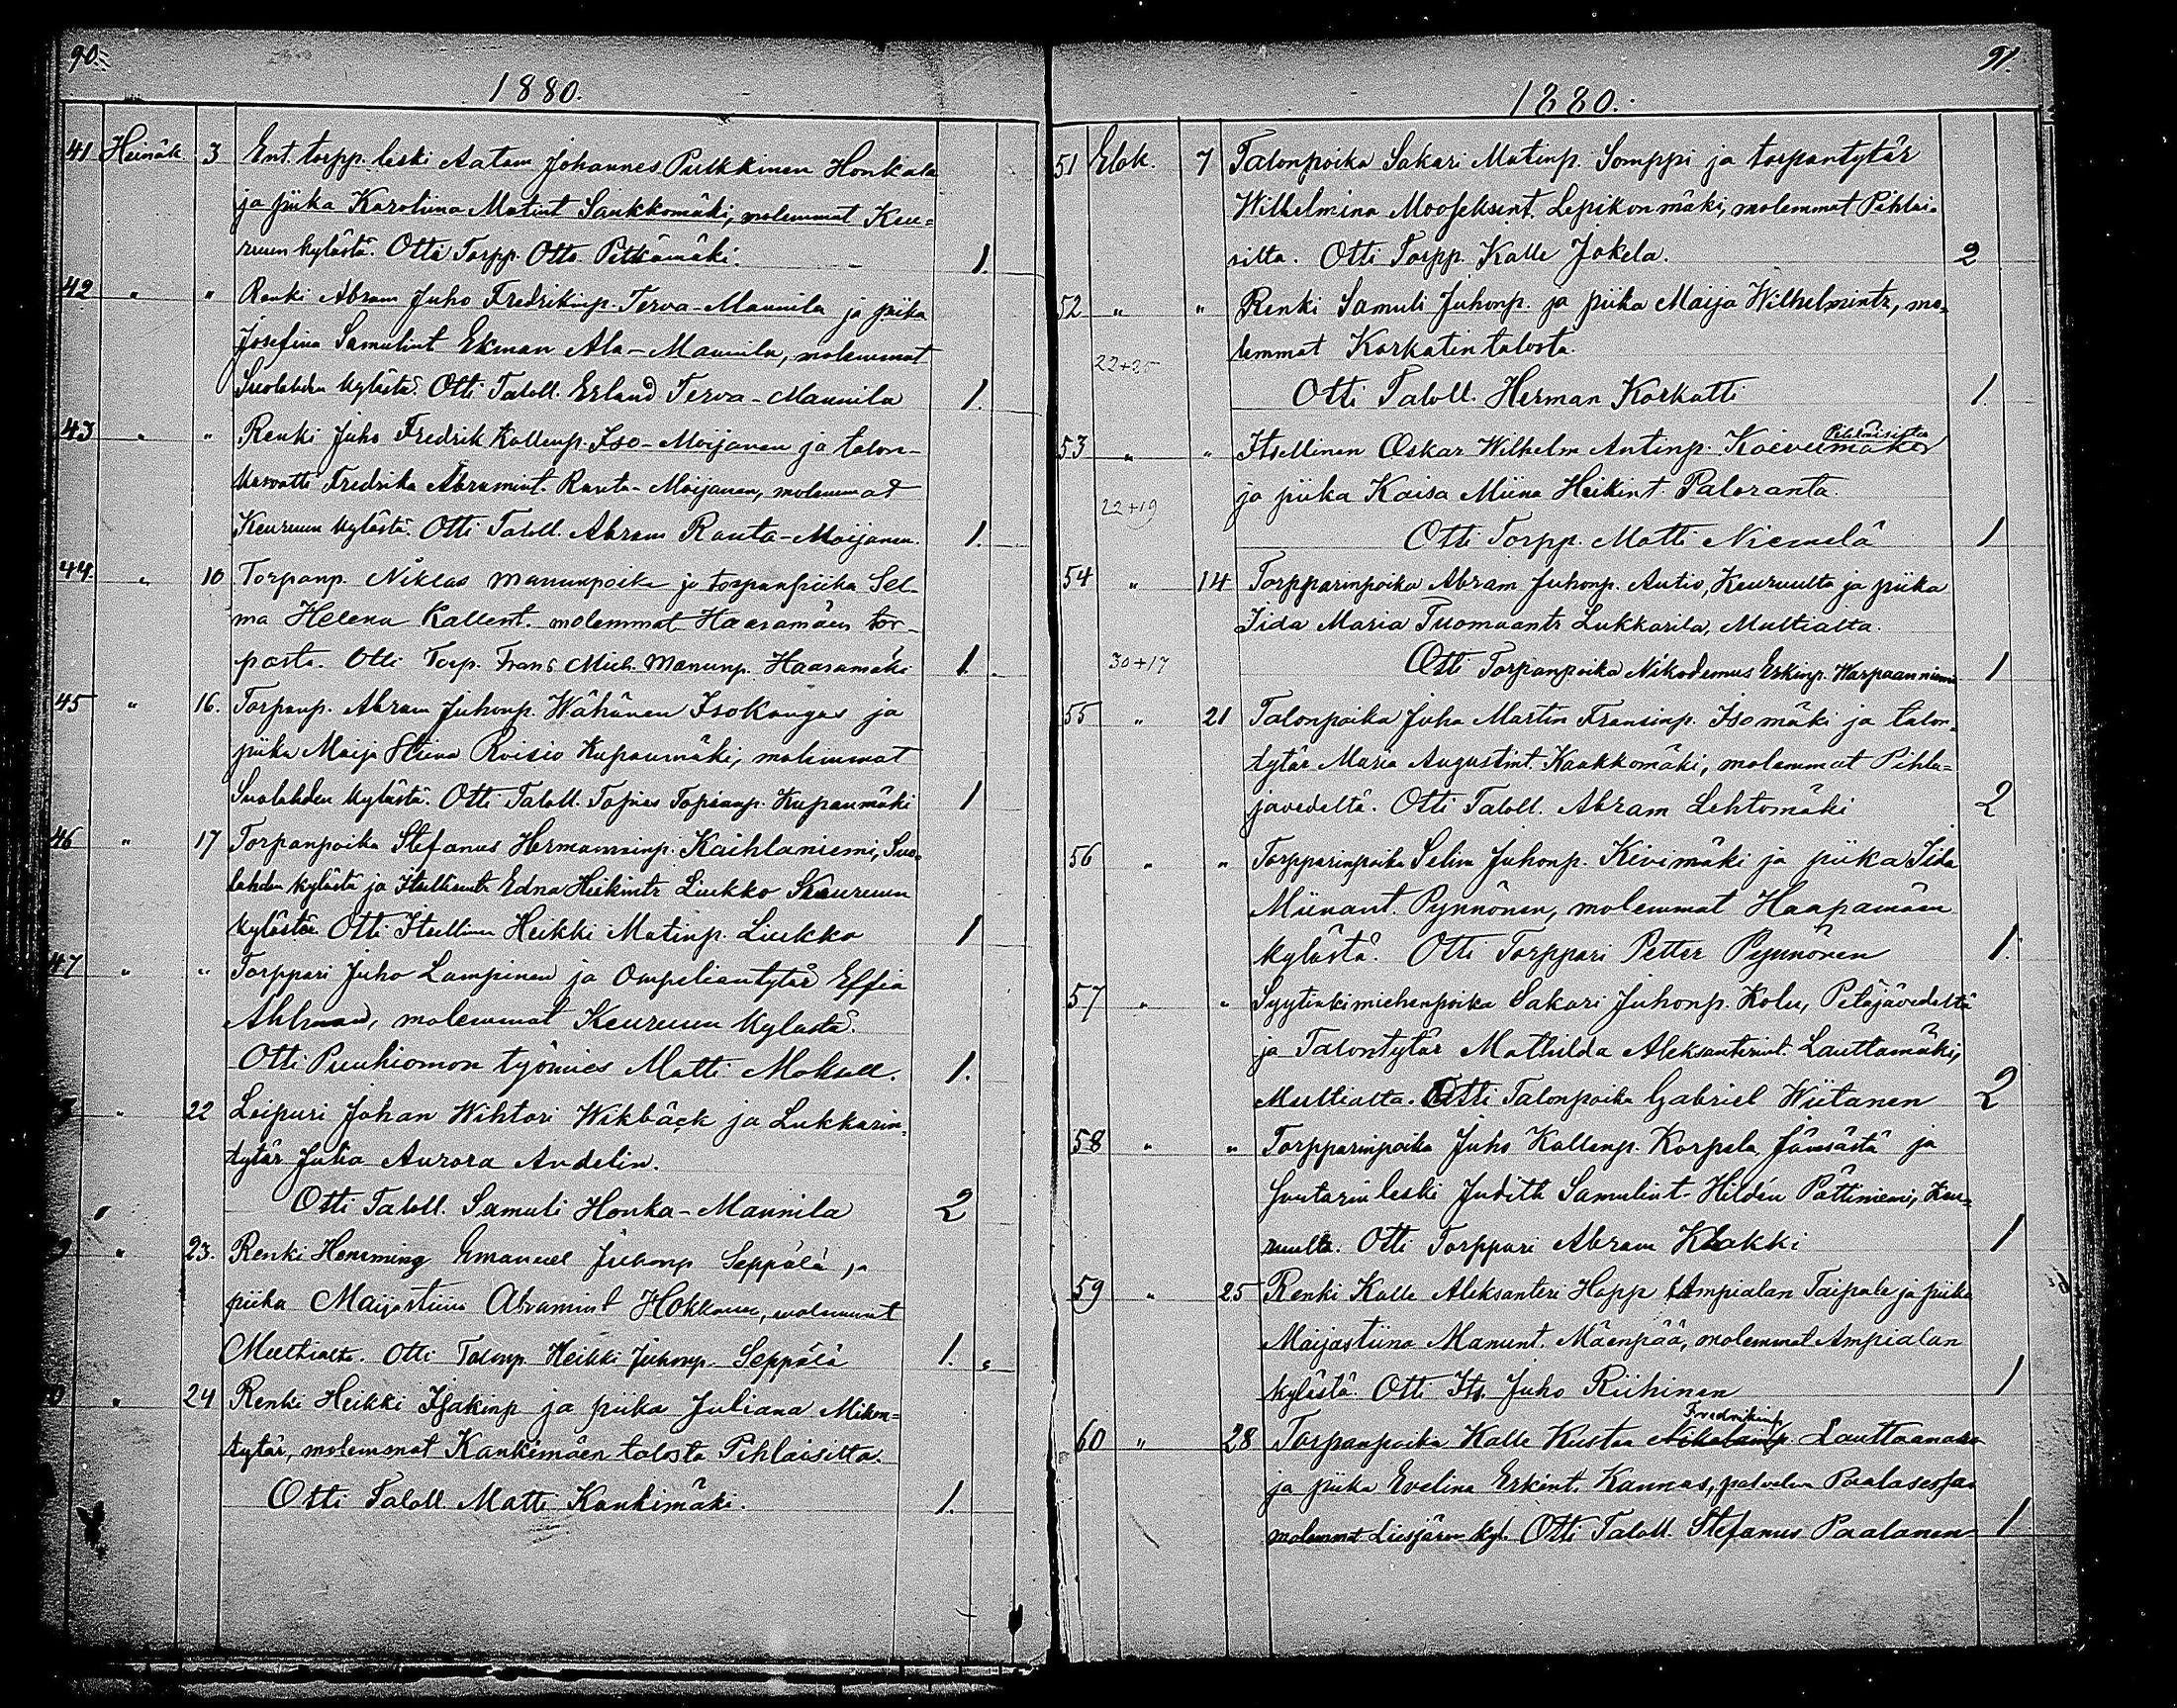 90.
1880.
41 Heinäk. 3 Ent. torpp. leski Aatam Johannes Pulkkinen Honkala
ja piika Karoliina Matint Saukkomäki, molemmat Keu=
ruun kylästä. Otti Torpp. Otto Pitkämäki. 1.
42 " " Renki Abram Juho Fredrikinp. Terva-Mannila ja piika
Josefina Samulint Ekman Ala-Mannila, molemmat
Suolahden kylästä. Otti Taloll. Erland Terva-Mannila 1.
43 " " Renki Juho Fredrik Kallenp. Iso-Moijanen ja talon-
kasvatti Fredrika Abramint. Ranta-Moijanen, molemmat
Keuruun kylästä. Otti Taloll. Abram Ranta-Moijanen. 1.
44. " 10 Torpanp. Niklas Manunpoika ja torpanpiika Sel-
ma Helena Kallent. molemmat Haasamäen tor-
pasta. Otti Torp. Frans Mich. Manunp. Haasamäki 1.
45 " 16. Torpanp. Abram Juhonp. Wähänen Isokangas ja
piika Maija Stiina Roisio Kupanmäki, molemmat
Suolahden kylästä. Otti Taloll. Topias Topianp. Kupanmäki 1
46 " 17 Torpanpoika Stefanus Hermanninp. Kaihlaniemi, Suo=
lahden kylästä ja Itsellisentr Edna Heikintr Liukko Keuruun
kylästä. Otti Itsellinen Heikki Matinp. Liukko 1
47 " " Torppari Juho Lampinen ja Ompeliantytär Effia
Ahlman, molemmat Keuruun kylästä.
Otti Puuhiomon työmies Matti Moksell. 1.
" 22 Leipuri Johan Wihtori Wikbäck ja Lukkarin=
tytär Julia Aurora Andelin.
Otti Taloll. Samuli Honka-Mannila 2
9 " 23. Renki Hemming Emanuel Juhonp Seppälä ja
piika Maijastiina Abramint Hokkanen, molemmat
Multialta. Otti Talonp. Heikki Juhonp. Seppälä 1.
0 " 24 Renki Heikki Isakinp ja piika Juliana Miken=
tytär, molemmat Kankimäen talosta Pihlaisilta.
Otti Taloll Matti Kankimäki. 1.
91.
1880.
51 Elok. 7 Talonpoika Sakari Matinp. Somppi ja torpantytär
Wilhelmina Mooseksent. Lepikonmäki, molemmat Pihlai=
silta. Otti Torpp. Kalle Jokela. 2
52 " " Renki Samuli Juhonp. ja piika Maija Wilhelmintr, mo=
22+25 lemmat Karkatin talosta.
Otti Taloll. Herman Karkatti 1.
Pihlaisista
53 " " Itsellinen Oskar Wilhelm Antinp. Koivumäker
22+19 ja piika Kaisa Miina Heikint. Paloranta.
Otti Torpp. Matti Niemelä 1
54 " 14 Torpparinpoika Abram Juhonp. Autio, Keuruulta ja piika
Iida Maria Tuomaantr Lukkarila, Multialta.
30+17 Otti Torpanpoika Nikodemus Erkinp. Warpaanniemi 1
55 " 21 Talonpoika Juha Martin Fransinp. Isomäki ja talon=
tytär Maria Augustint. Kaakkomäki, molemmat Pihla=
javedeltä. Otti Taloll. Abram Lehtomäki 2
56 " " Torpparinpoika Selim Juhonp. Kivimäki ja piika Iida
Miinant. Pynnönen, molemmat Haapamäen
kylästä. Otti Torppari Petter Pynnönen 1.
57 " " Syytinkimiehenpoika Sakari Juhonp. Kolu, Petäjävedeltä
ja Talontytär Mathilda Aleksanterint. Lauttamäki,
Multialta. Otti Talonpoika Gabriel Wiitanen 2
58 " " Torpparinpoika Juho Kallenp. Korpela Jämsästä ja
Suutarin leski Judith Samulint. Hildén Pättiniemi, Keu=
ruulta. Otti Torppari Abram Klakki 1
59 " 25 Renki Kalle Aleksanteri Hopp Ampialan Taipale ja piika
Maijastiina Manunt. Mäenpää, molemmat Ampialan
kylästä. Otti Its. Juho Riihinen 1
Fredrikinp
60 " 28 Torpanpoika Kalle Kustaa Nikolainp. Lauttaanaho
ja piika Evelina Erkint. Kannas, palvelua Paalasessa
molemmat Liesjärven kyl. Otti Taloll. Stefanus Paalanen 1